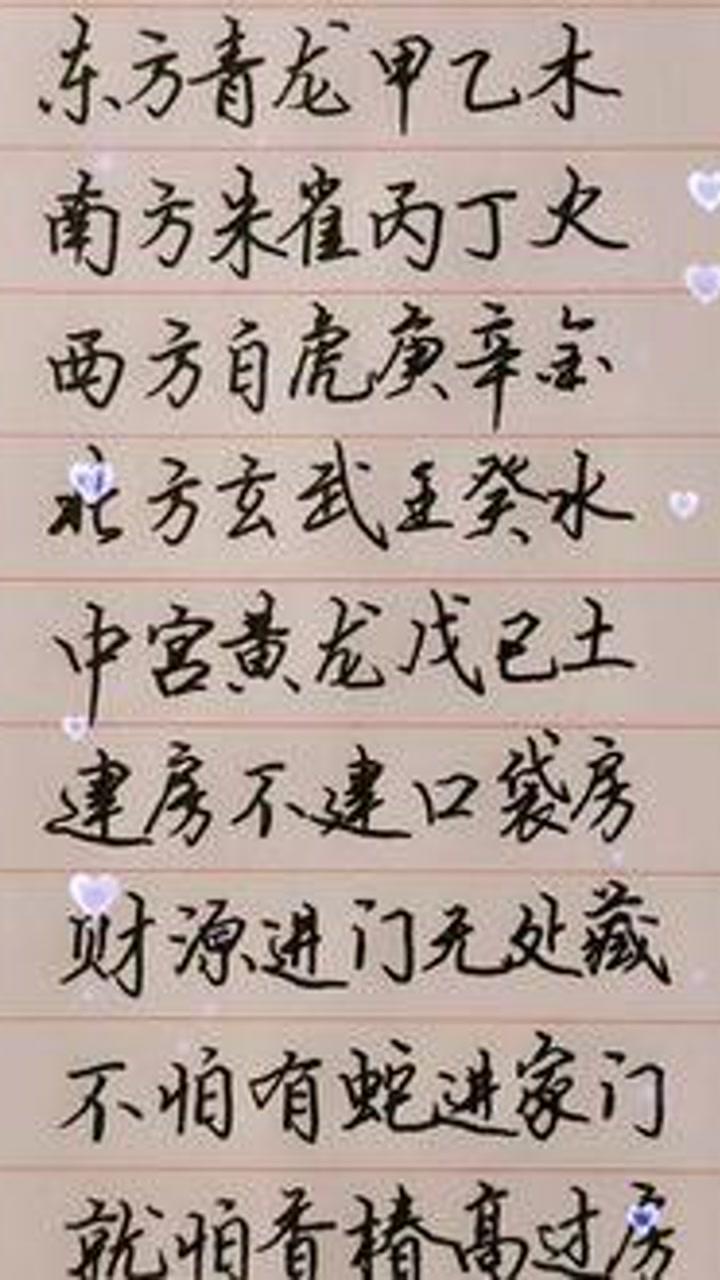 东方青龙甲乙木
南方朱雀丙丁火
西方白虎庚辛金
北方玄武壬癸水
中宫黄龙戊己土
建房不建口袋房
财源进门无处藏
不怕有蛇进家门
就怕香椿高过房